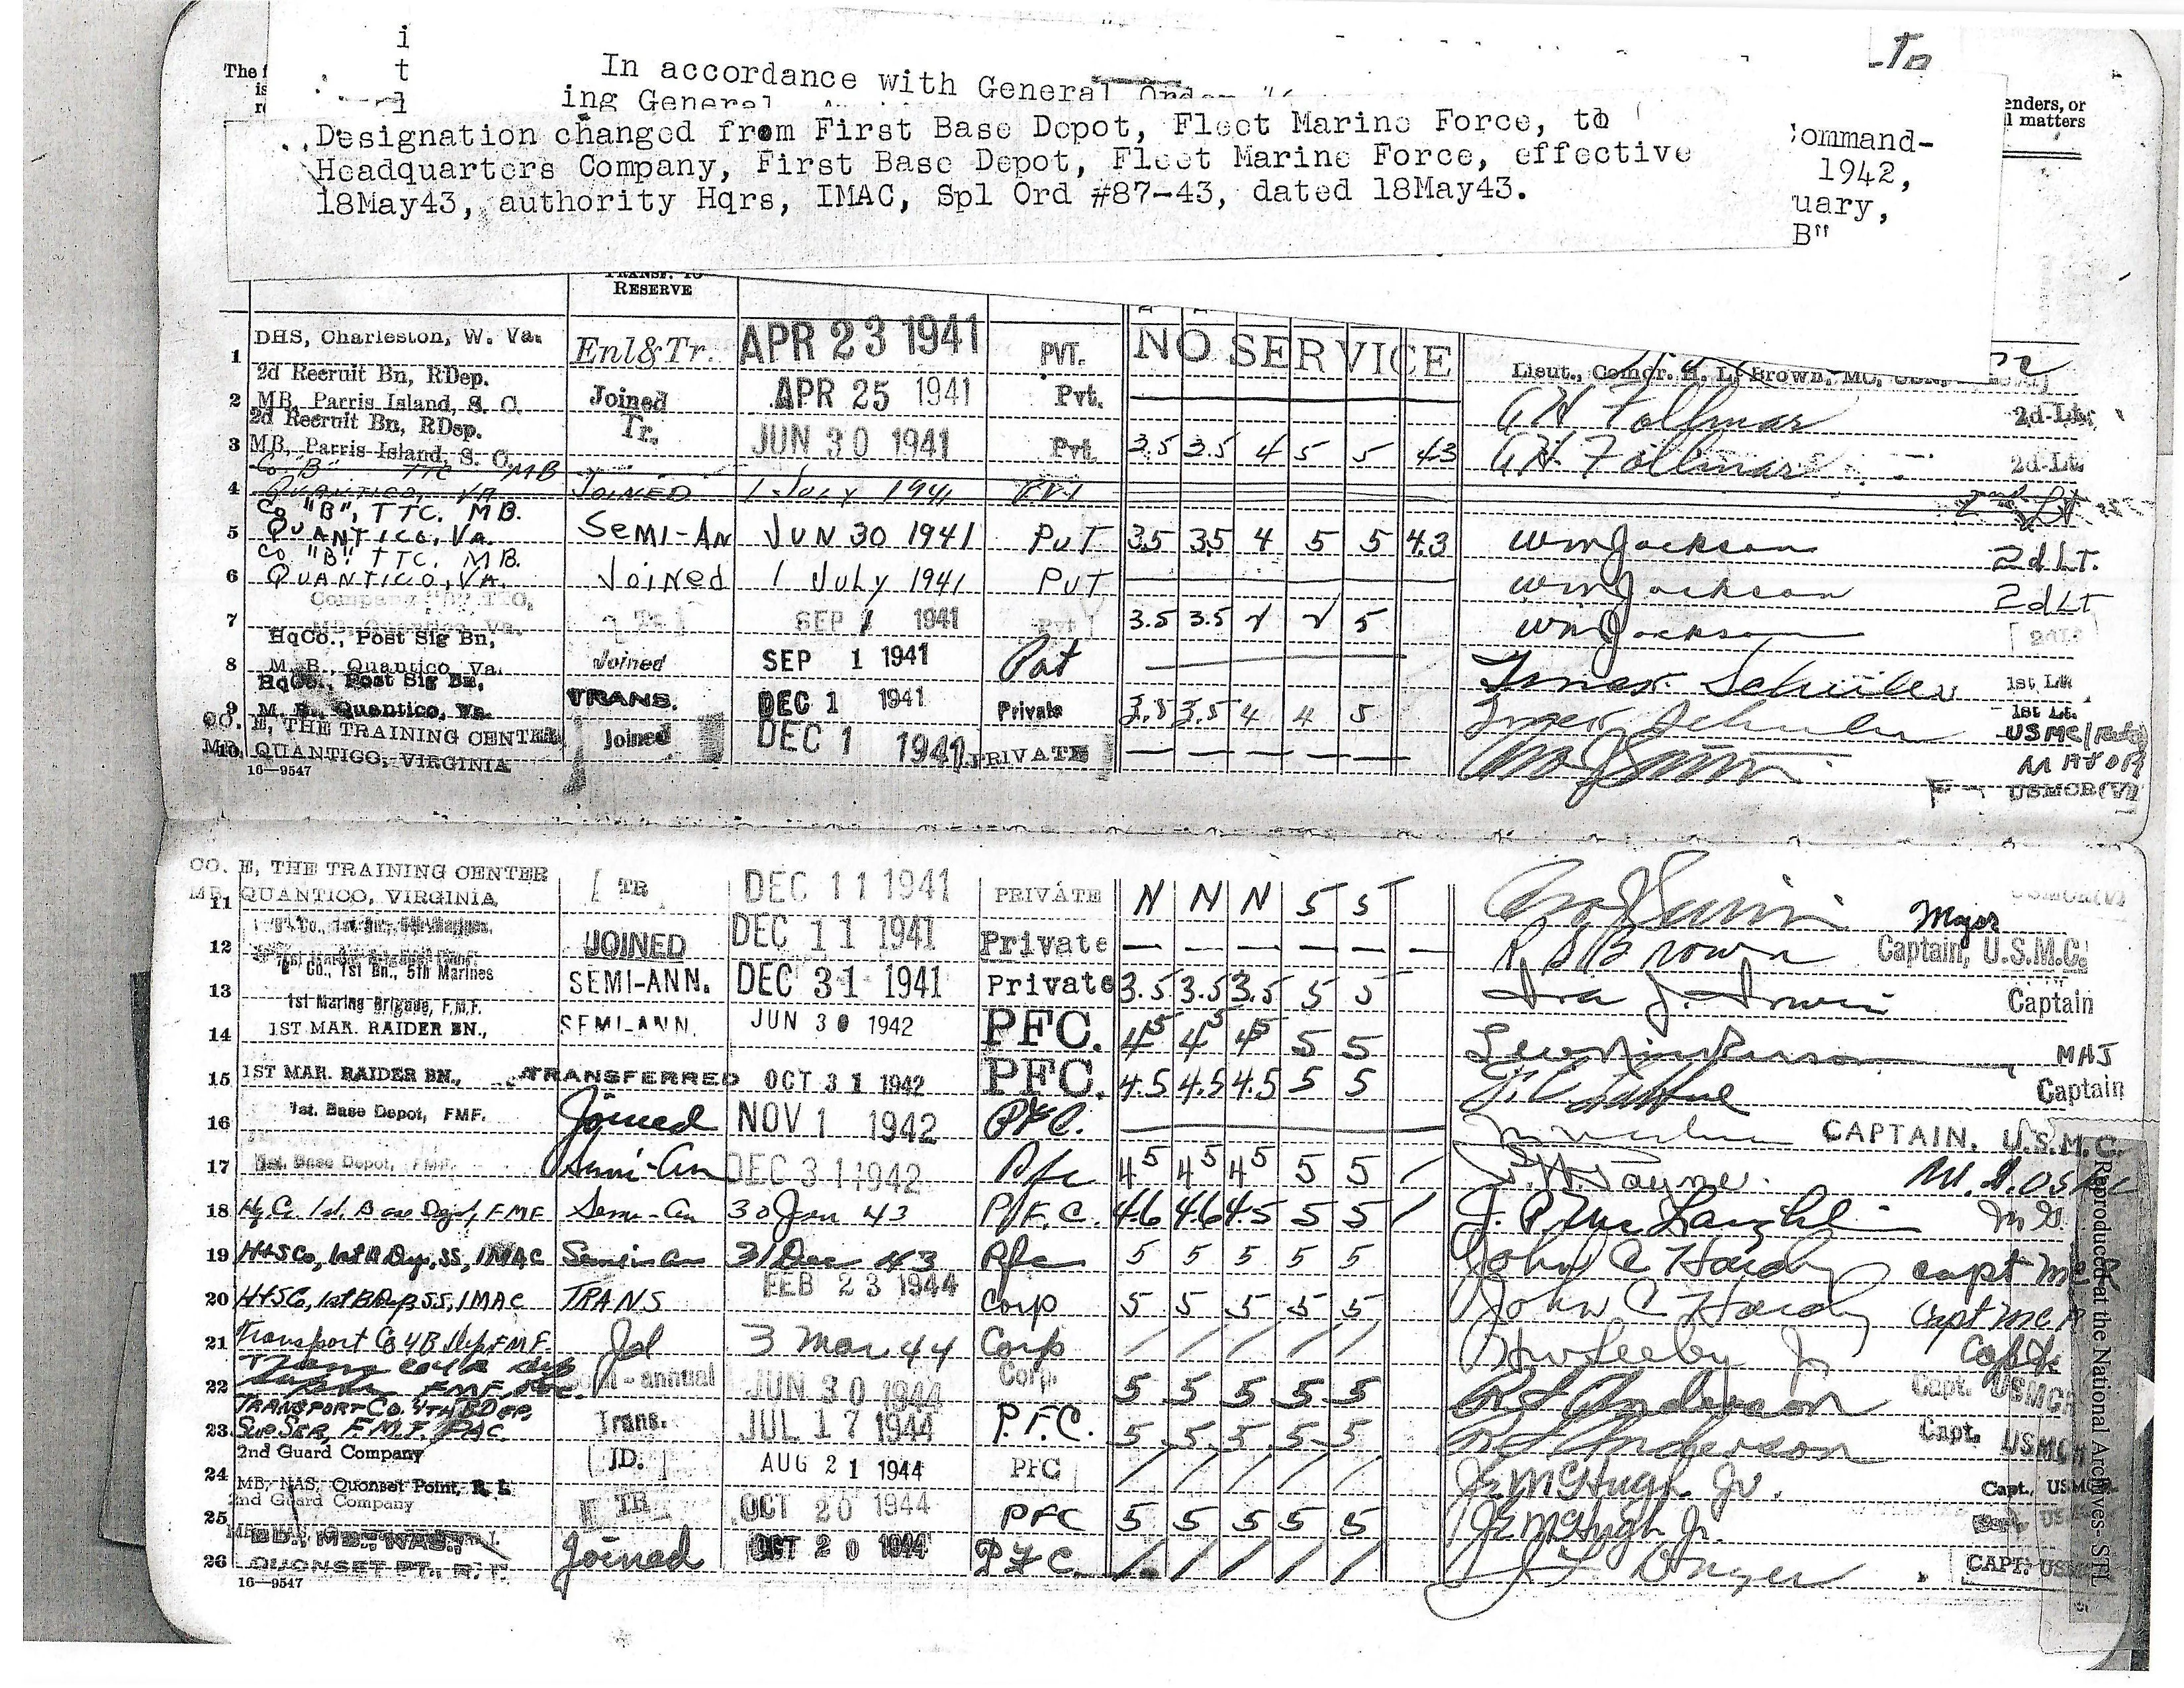 i
t
l
The f
is
re
In accordance with General
ing General
Designation changed from First Base Depot, Fleet Marine Force, to
Headquarters Company, First Base Depot, Fleet Marine Force, effective
18May43, authority Hqrs, IMAC, Spl Ord #87-43, dated 18May43.
To
enders, or
l matters
ommand-
1942,
uary,
B"
TRANSF. TO
RESERVE
DHS, Charleston, W. Va.
1 Enl&Tr. APR 23 1941 PVT. NO SERVICE Lieut., Comdr. H. L. Brown, MC,
2d Recruit Bn, RDep.
2 MB, Parris Island, S. C. Joined APR 25 1941 Pvt. A H Follmar 2d Lt.
2d Recruit Bn, RDep.
3 MB, Parris Island, S. C. Tr. JUN 30 1941 Pvt. 3.5 3.5 4 5 5 4.3 A H Follmar 2d Lt.
Co. "B" TTC MB
4 QUANTICO, VA JOINED 1 July 1941 PVT 2nd Lt
Co "B", TTC. MB.
5 QUANTICO, Va. SEMI-AN JUN 30 1941 PVT 3.5 3.5 4 5 5 4.3 Wm Jackson 2d LT.
Co "B" TTC. MB.
6 QUANTICO, VA. JOINED 1 JULY 1941 PVT Wm Jackson 2d LT
Company "B" TTC,
7 MB, Quantico, Va. Tr. SEP 1 1941 Pvt 3.5 3.5 √ √ 5 Wm Jackson
HqCo., Post Sig Bn,
8 M. B., Quantico, Va. Joined SEP 1 1941 Pvt 1st Lt.
HqCo., Post Sig Bn,
9 M. B., Quantico, Va. TRANS. DEC 1 1941 Private 3.5 3.5 4 4 5 1st Lt.
USMC
CO. E, THE TRAINING CENTER
10 MB, QUANTICO, VIRGINIA Joined DEC 1 1941 PRIVATE MAJOR
16—9547 USMCR(V)
CO. E, THE TRAINING CENTER
11 MB, QUANTICO, VIRGINIA TR DEC 11 1941 PRIVATE N N N 5 5 Major USMCR(V)
12 JOINED DEC 11 1941 Private R D Brown Captain, U.S.M.C.
" Co., 1st Bn., 5th Marines
13 1st Marine Brigade, F.M.F. SEMI-ANN. DEC 31 1941 Private 3.5 3.5 3.5 5 5 Ira J. Irwin Captain
14 1ST MAR. RAIDER BN., SEMI-ANN. JUN 30 1942 PFC. 4.5 4.5 4.5 5 5 MAJ
15 1ST MAR. RAIDER BN., TRANSFERRED OCT 31 1942 PFC. 4.5 4.5 4.5 5 5 Captain
16 1st. Base Depot, FMF. Joined NOV 1 1942 Pfc. CAPTAIN, U.S.M.C.
17 1st. Base Depot, FMF. Semi-An DEC 31 1942 Pfc 4.5 4.5 4.5 5 5 / Payne.
18 Hq Co 1st. Base Depot, FMF Semi-An 30 Jun 43 P.F.C. 4.6 4.6 4.5 5 5 / J. P. McLaughlin
19 H+SCo, 1st B Dep, SS, IMAC Semi-An 31 Dec 43 Pfc 5 5 5 5 5 John C Hardy Capt MCR
20 H+SCo, 1st B Dep SS, IMAC TRANS FEB 23 1944 Corp 5 5 5 5 5 John C Hardy Capt MCR
21 Transport Co 4 B Dep F.M.F. Jd 3 Mar 44 Corp / / / / / H W Seeby Jr Capt
22 Semi-annual JUN 30 1944 Corp 5 5 5 5 5 R L Anderson Capt. USMCR
TRANSPORT CO. 4TH B DEP,
23 SupSER, F.M.F. PAC. Trans. JUL 17 1944 P.F.C. 5 5 5 5 5 R L Anderson Capt. USMCR
2nd Guard Company
24 MB, NAS, Quonset Point, R. I. JD. AUG 21 1944 PFC / / / / / J E McHugh Jr. Capt., USMCR
2nd Guard Company
25 TR OCT 20 1944 PFC 5 5 5 5 5 J E McHugh Jr.
BD., MB., NAS.,
26 QUONSET PT., R. I. Joined OCT 20 1944 P.F.C. / / / / / Dwyer CAPT. USMCR
16—9547
Reproduced at the National Archives-STL